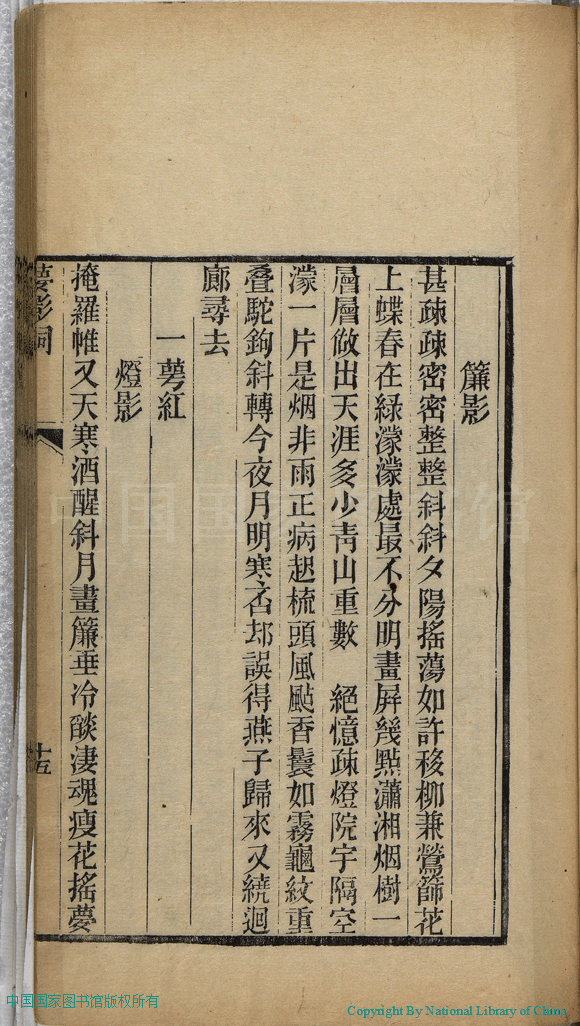 簾影
甚疎疎密密整整斜斜夕陽搖蕩如許移柳兼鶯篩花
上蝶春在綠濛濛處最不分明畫屏幾點瀟湘烟樹一
層層做出天涯多少靑山重數　絕憶疎燈院宇隔空
濛一片是烟非雨正病起梳頭風颭香鬟如霧龜紋重
疊駝鉤斜轉今夜月明寒否却誤得燕子歸來又繞迴
廊尋去
一萼紅
燈影
掩羅帷又天寒酒醒斜月畫簾垂冷燄淒魂瘦花搖夢
夢影詞
十五
中国国家图书馆
中国国家图书馆版权所有
Copyright By National Library of China